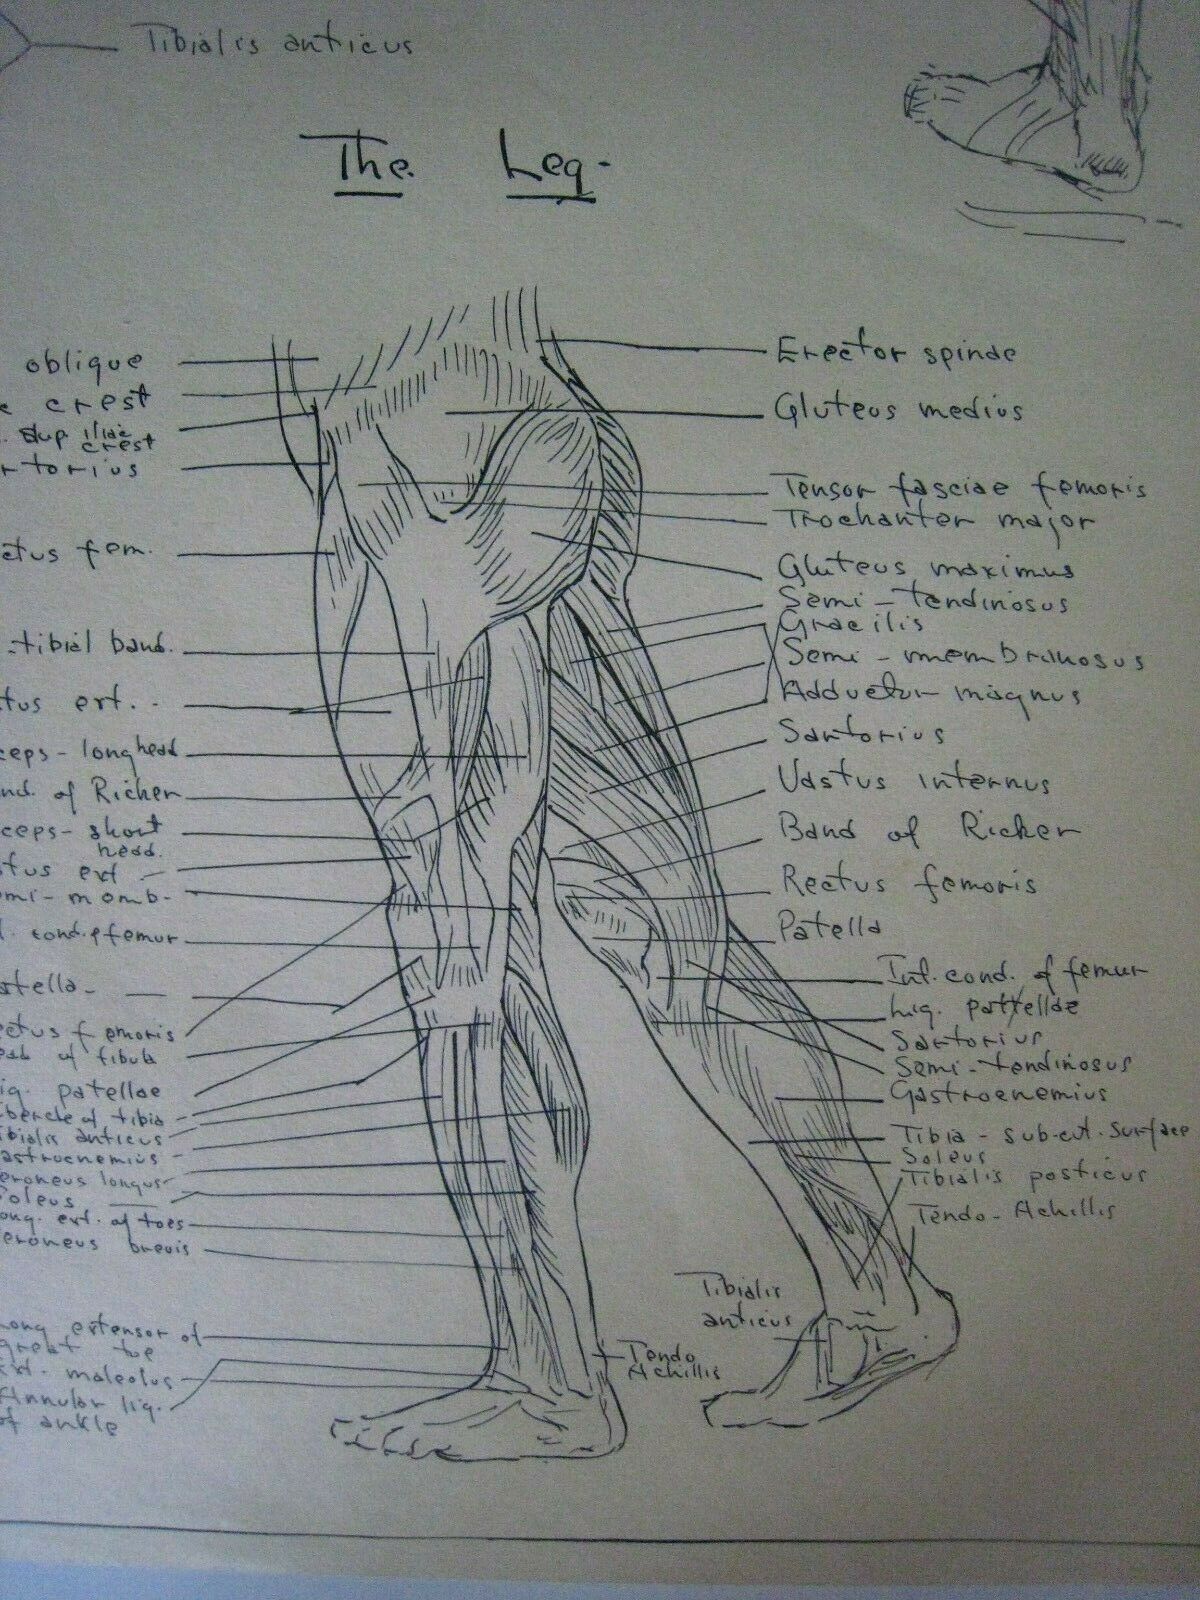 Tibialis anticus
The Leg-
oblique
crest
sup iliac
crest
fem.
tibial band.
ext. -
longhead
of Richer
short
head.
ext -
momb-
cond. of femur
femoris
of fibula
patellae
of tibia
anticus
longus
ext. of toes
brevis
extensor of
great toe
maleolus
Annular lig.
of ankle
Erector spinae
Gluteus medius
Tensor fasciae femoris
Trochanter major
Gluteus maximus
Semi - tendinosus
Gracilis
Semi - membranosus
Adductor magnus
Sartorius
Vastus internus
Band of Richer
Rectus femoris
Patella
Int. cond. of femur
Lig. pattellae
Sartorius
Semi-tendinosus
Gastrocnemius
Tibia - sub-cut. surface
Soleus
Tibialis posticus
Tendo-Achillis
Tibialis
anticus
Tendo
Achillis